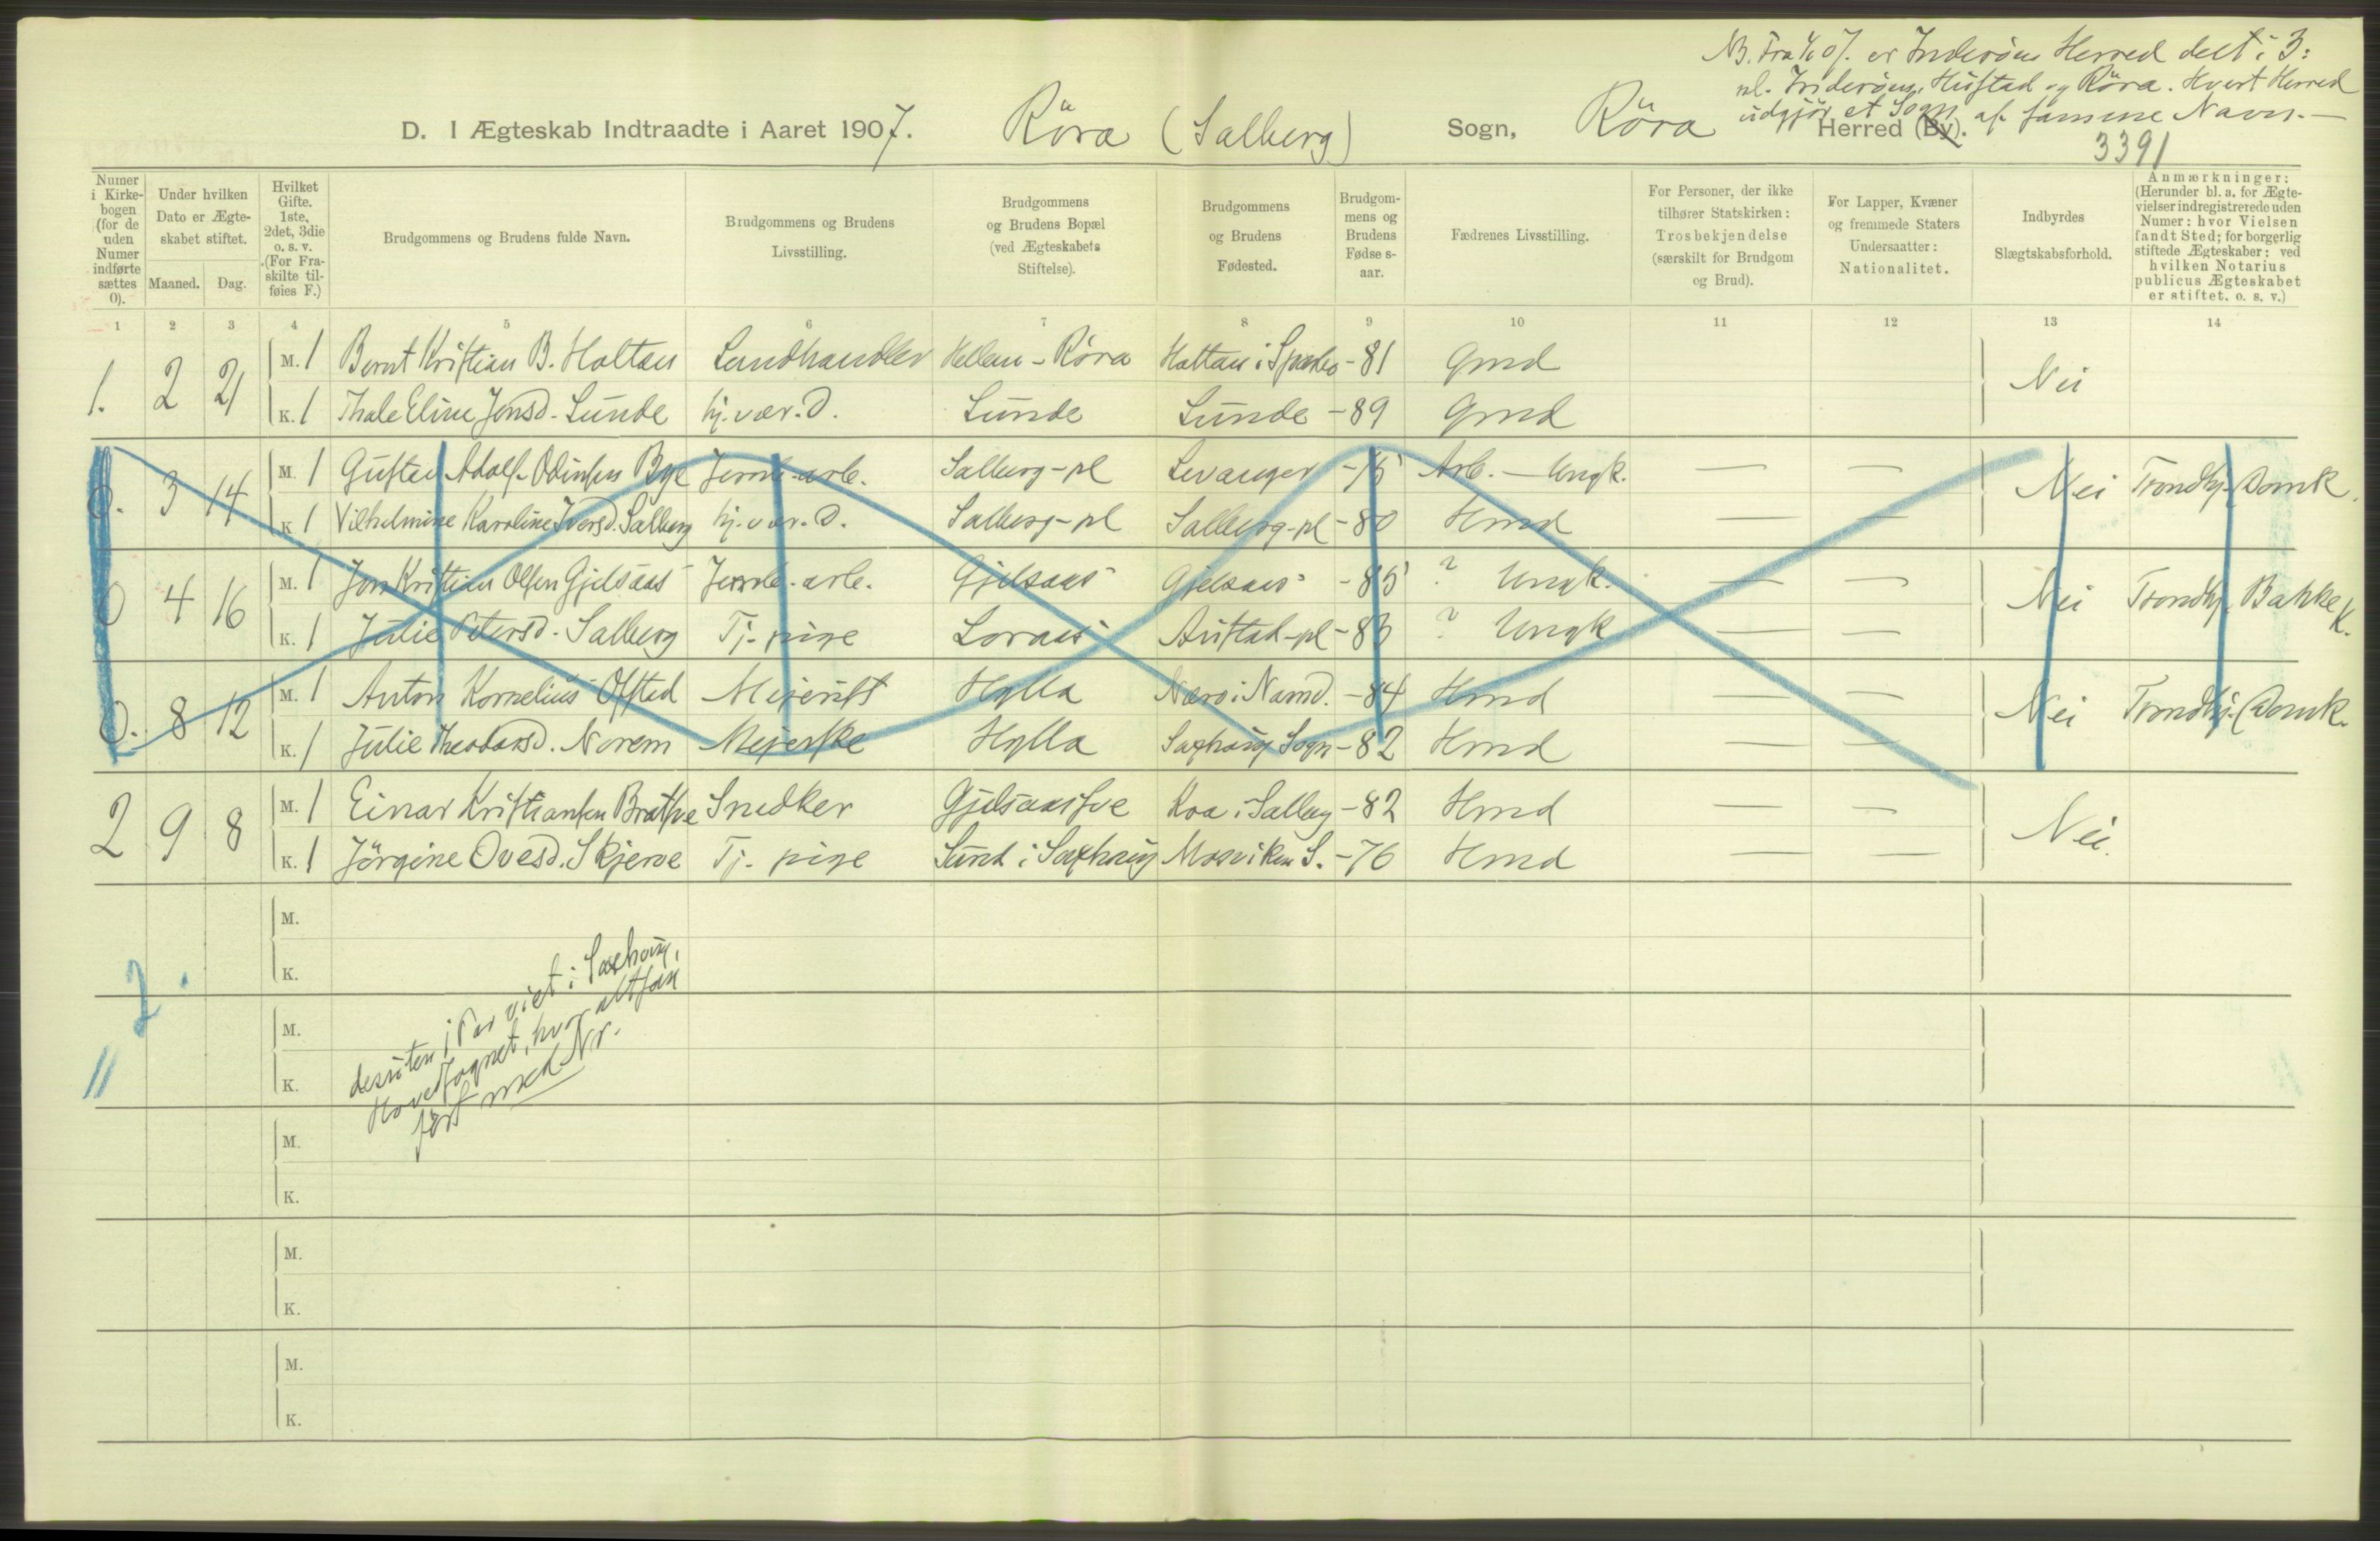 NB. Fra 1/1 07. er Inderöens Herred delt i 3:
nl. Inderöen, Hustad og Röra. Hvert Herred
udgjör et Sogn af samme Navn.—
D. I Ægteskab Indtraadte i Aaret 1907. Röra (Salberg) Sogn, Röra Herred (By).
3391
Numer i Kirkebogen (for de uden Numer indførte sættes 0).
Under hvilken Dato er Ægteskabet stiftet.
Maaned. Dag.
Hvilket Gifte. 1ste, 2det, 3die o. s. v. (For Fraskilte tilføies F.)
Brudgommens og Brudens fulde Navn.
Brudgommens og Brudens Livsstilling.
Brudgommens og Brudens Bopæl (ved Ægteskabets Stiftelse).
Brudgommens og Brudens Fødested.
Brudgommens og Brudens Fødselsaar.
Fædrenes Livsstilling.
For Personer, der ikke tilhører Statskirken: Trosbekjendelse (særskilt for Brudgom og Brud).
For Lapper, Kvæner og fremmede Staters Undersaatter: Nationalitet.
Indbyrdes Slægtskabsforhold.
Anmærkninger: (Herunder bl. a. for Ægtevielser indregistrerede uden Numer: hvor Vielsen fandt Sted; for borgerlig stiftede Ægteskaber: ved hvilken Notarius publicus Ægteskabet er stiftet. o. s. v.)
1 2 3 4 5 6 7 8 9 10 11 12 13 14
1. 2 21 M. 1 Bernt Kristian B. Holtan Landhandler Hellem - Röra Holtan i Sparbo -81 Gmd Nei
K. 1 Thale Eline Jensd. Lunde hj. vær. D. Lunde Lunde -89 Gmd
0. 3 14 M. 1 Gustav Adolf Odinsen Bye Jernb. arb. Salberg-pl Levanger -75 Arb. — Ungk. — — Nei Trondhj. Domk.
K. 1 Vilhelmine Karoline Iversd. Salberg hj. vær. D. Salberg-pl Salberg-pl -80 Hmd — —
0 4 16 M. 1 Jon Kristian Olsen Gjelsaas Jernb. arb. Gjelsaas Gjelsaas -85 ? Ungk. — — Nei Trondhj. Bakke K.
K. 1 Julie Petersd. Salberg Tj. pige Loraas Austad-pl -83 ? Ungk — —
0. 8 12 M. 1 Anton Kornelius Ofstad Mejerist Hylla Nærö i Namd. -84 Hmd — — Nei Trondhj. Domk.
K. 1 Julie Theodorsd. Norem Mejerske Hylla Saxhaug Sogn -82 Hmd — —
2 9 8 M. 1 Einar Kristiansen Bratsve Snedker Gjelsaassve Koa i Salberg -82 Hmd — — Nei.
K. 1 Jörgine Ovesd. Skjerve Tj. pige Sund i Saxhaug Mosviken S. -76 Hmd — —
M.
K.
2.
desuten 1 Par viet i Saxhaug,
Hovedsognet, hvor altsaa
fört med Nr.
M.
K.
M.
K.
M.
K.
M.
K.